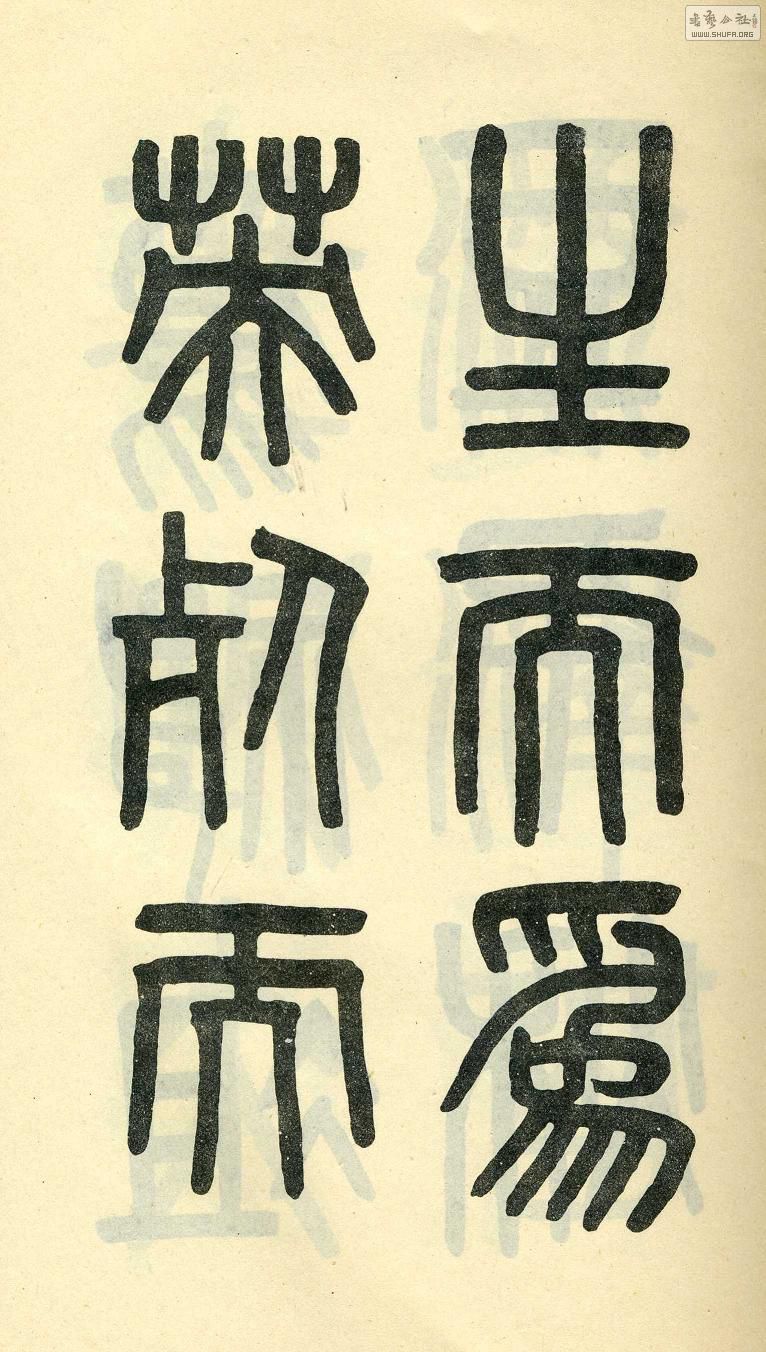 生而爲
英死而
書藝公社
WWW.SHUFA.ORG